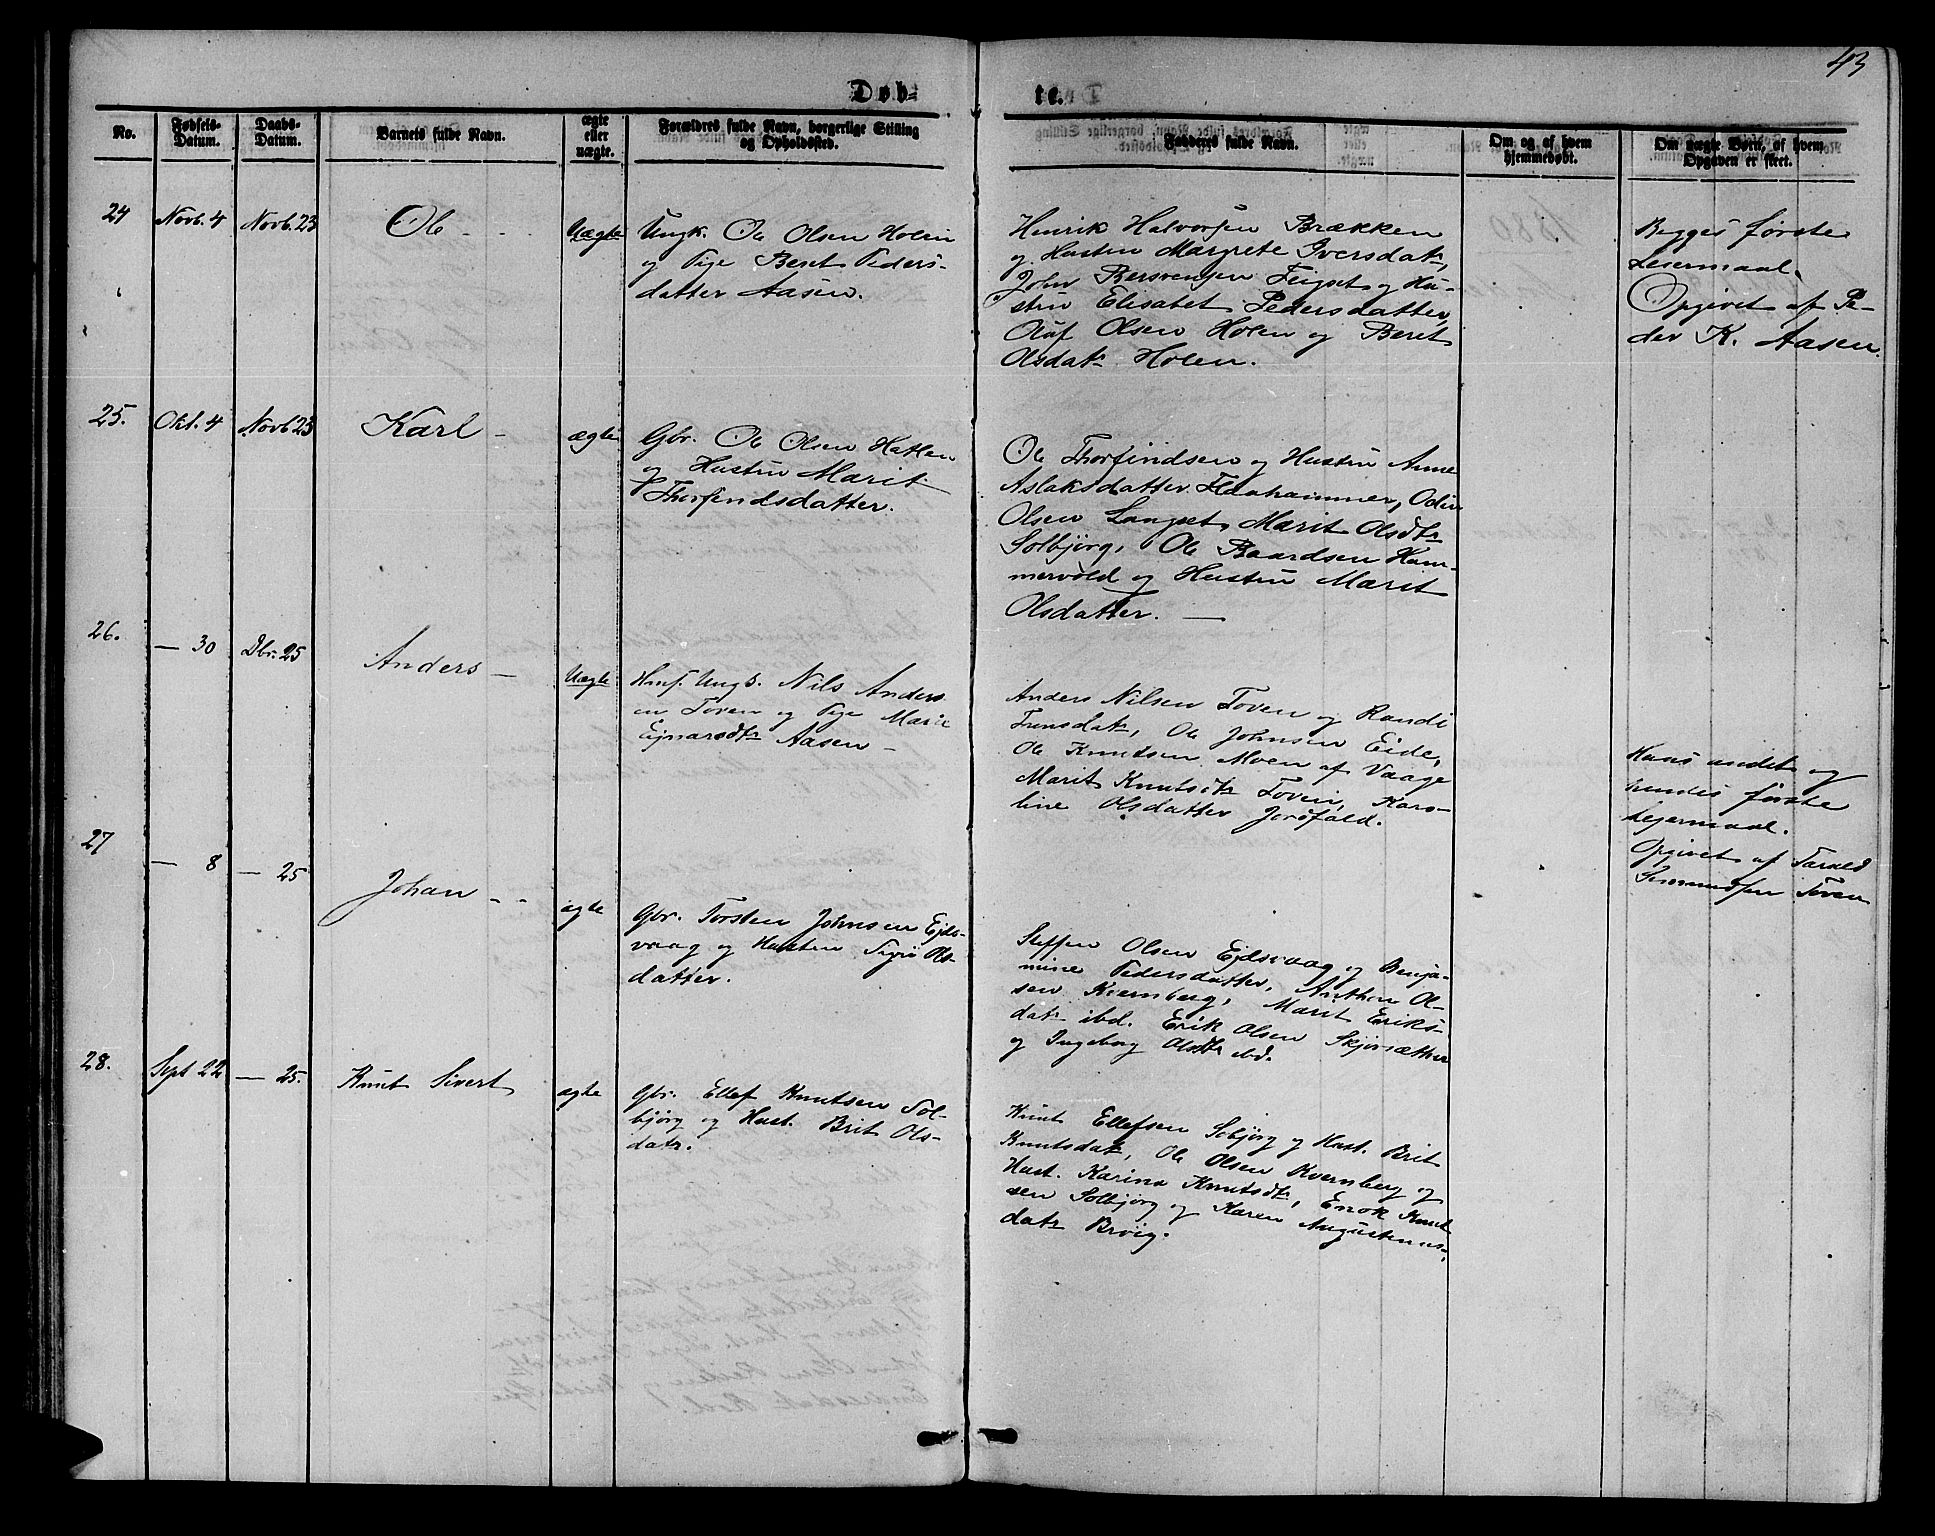 43
Døb-
te.
No.
Fødsels-
Datum.
Daabs-
Datum.
Barnets fulde Navn.
ægte
eller
uægte.
Forældres fulde Navn, borgerlige Stilling
og Opholdssted.
Fadderes fulde Navn.
Om og af hvem
hjemmedøbt.
Om uægte Børn, af hvem
Opgaven er skeet.
24
Novb. 4
Novb. 23
Ole
Uægte
Ungk. Ole Olsen Holen
og Pige Beret Peders-
datter Aasen.
Henrik Halvorsen Brækken
og Hustru Margrete Iversdatr,
John Bersvensen Fugset og Hu-
stru Elisabet Pedersdatter,
Oluf Olsen Holen og Beret
Olsdatr Holen.
Begges første
Leiermaal.
Opgivet af Pe-
der K. Aasen.
25.
Okt. 4
Novb 23
Karl
ægte
Gbr. Ole Olsen Hatlen
og Hustru Marit
Thorfindsdatter.
Ole Thorfindsen og Hustru Anne
Aslaksdatter Flaahammer, Odin
Olsen Langset, Marit Olsdtr
Solbjørg, Ole Baardsen Ham-
mervold og Hustru Marit
Olsdatter.
26.
— 30
Dbr. 25
Anders
Uægte
Nils Anders
en Toven og Pige Marie
Ejnarsdtr Aasen
Anders Nilsen Toven og Randi
Ole Johnsen Eide,
Ole Knutsen Moen af Vaage
Marit Knutsdtr Toven, Karo-
line Olsdatter
Hans andet og
hendes første
Lejermaal.
Opgivet af Tarald
Toven
27
— 8
— 25
Johan
ægte
Gbr. Torsten Johnsen Ejds-
vaag og Hustru Ols-
datter.
Steffen Olsen Ejdsvaag og Benja-
mine Pedersdatter, Anthon Ol-
sen Kvernberg, Marit Eriks-
datr ibd. Erik Olsen Skjørsætter
og Ingeborg Olsdtr ibd.
28.
Sept 22
— 25.
Knut Sivert
ægte
Gbr. Ellef Knutsen Sol-
bjørg og Hust. Brit Ols-
datr.
Knut Ellefsen Solbjørg og Hust. Brit
Knutsdatr, Ole Olsen Kvernberg og
Hust. Karina Knutsdtr, Enok Knut
sen Solbjørg og Karen Augustinus-
datr